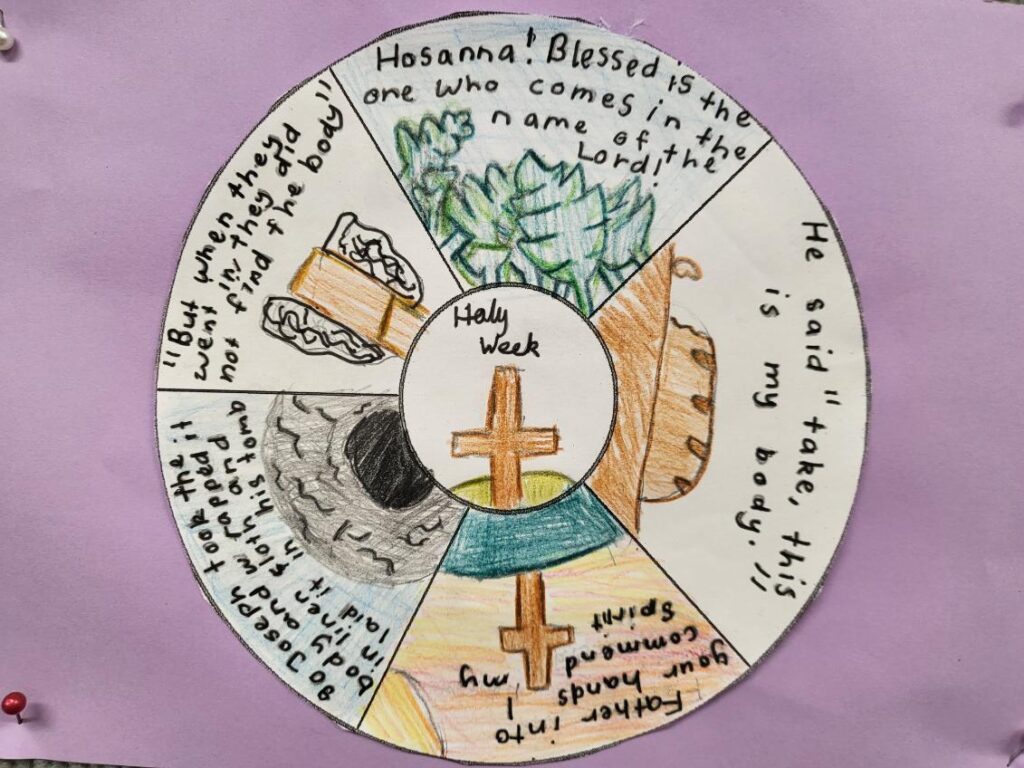 Holy
Week
Hosanna! Blessed is the
one who comes in the
name of the
Lord!
He said " take, this
is my body."
Father into
your hands I
commend my
Spirit
go Joseph took the it
body and w rapped
in linen sloth and
laid it in his tomb
"But when they
went in, they did
not find the body"